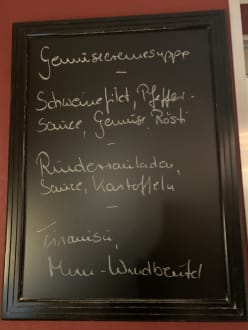 Gemüsecremesuppe
–
Schweinefilet, Pfeffer-
sauce, Gemüse, Rösti
–
Rinderrouladen,
Sauce, Kartoffeln
–
Tiramisu,
Mini-Windbeutel